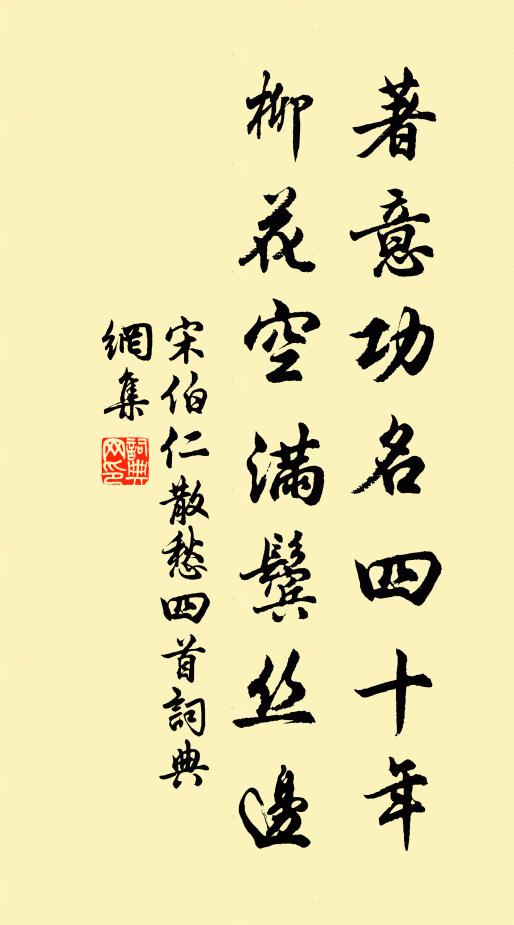 著意功名四十年
柳花空滿鬢丝邊
宋伯仁散愁四首詞典
網集
詞典網印